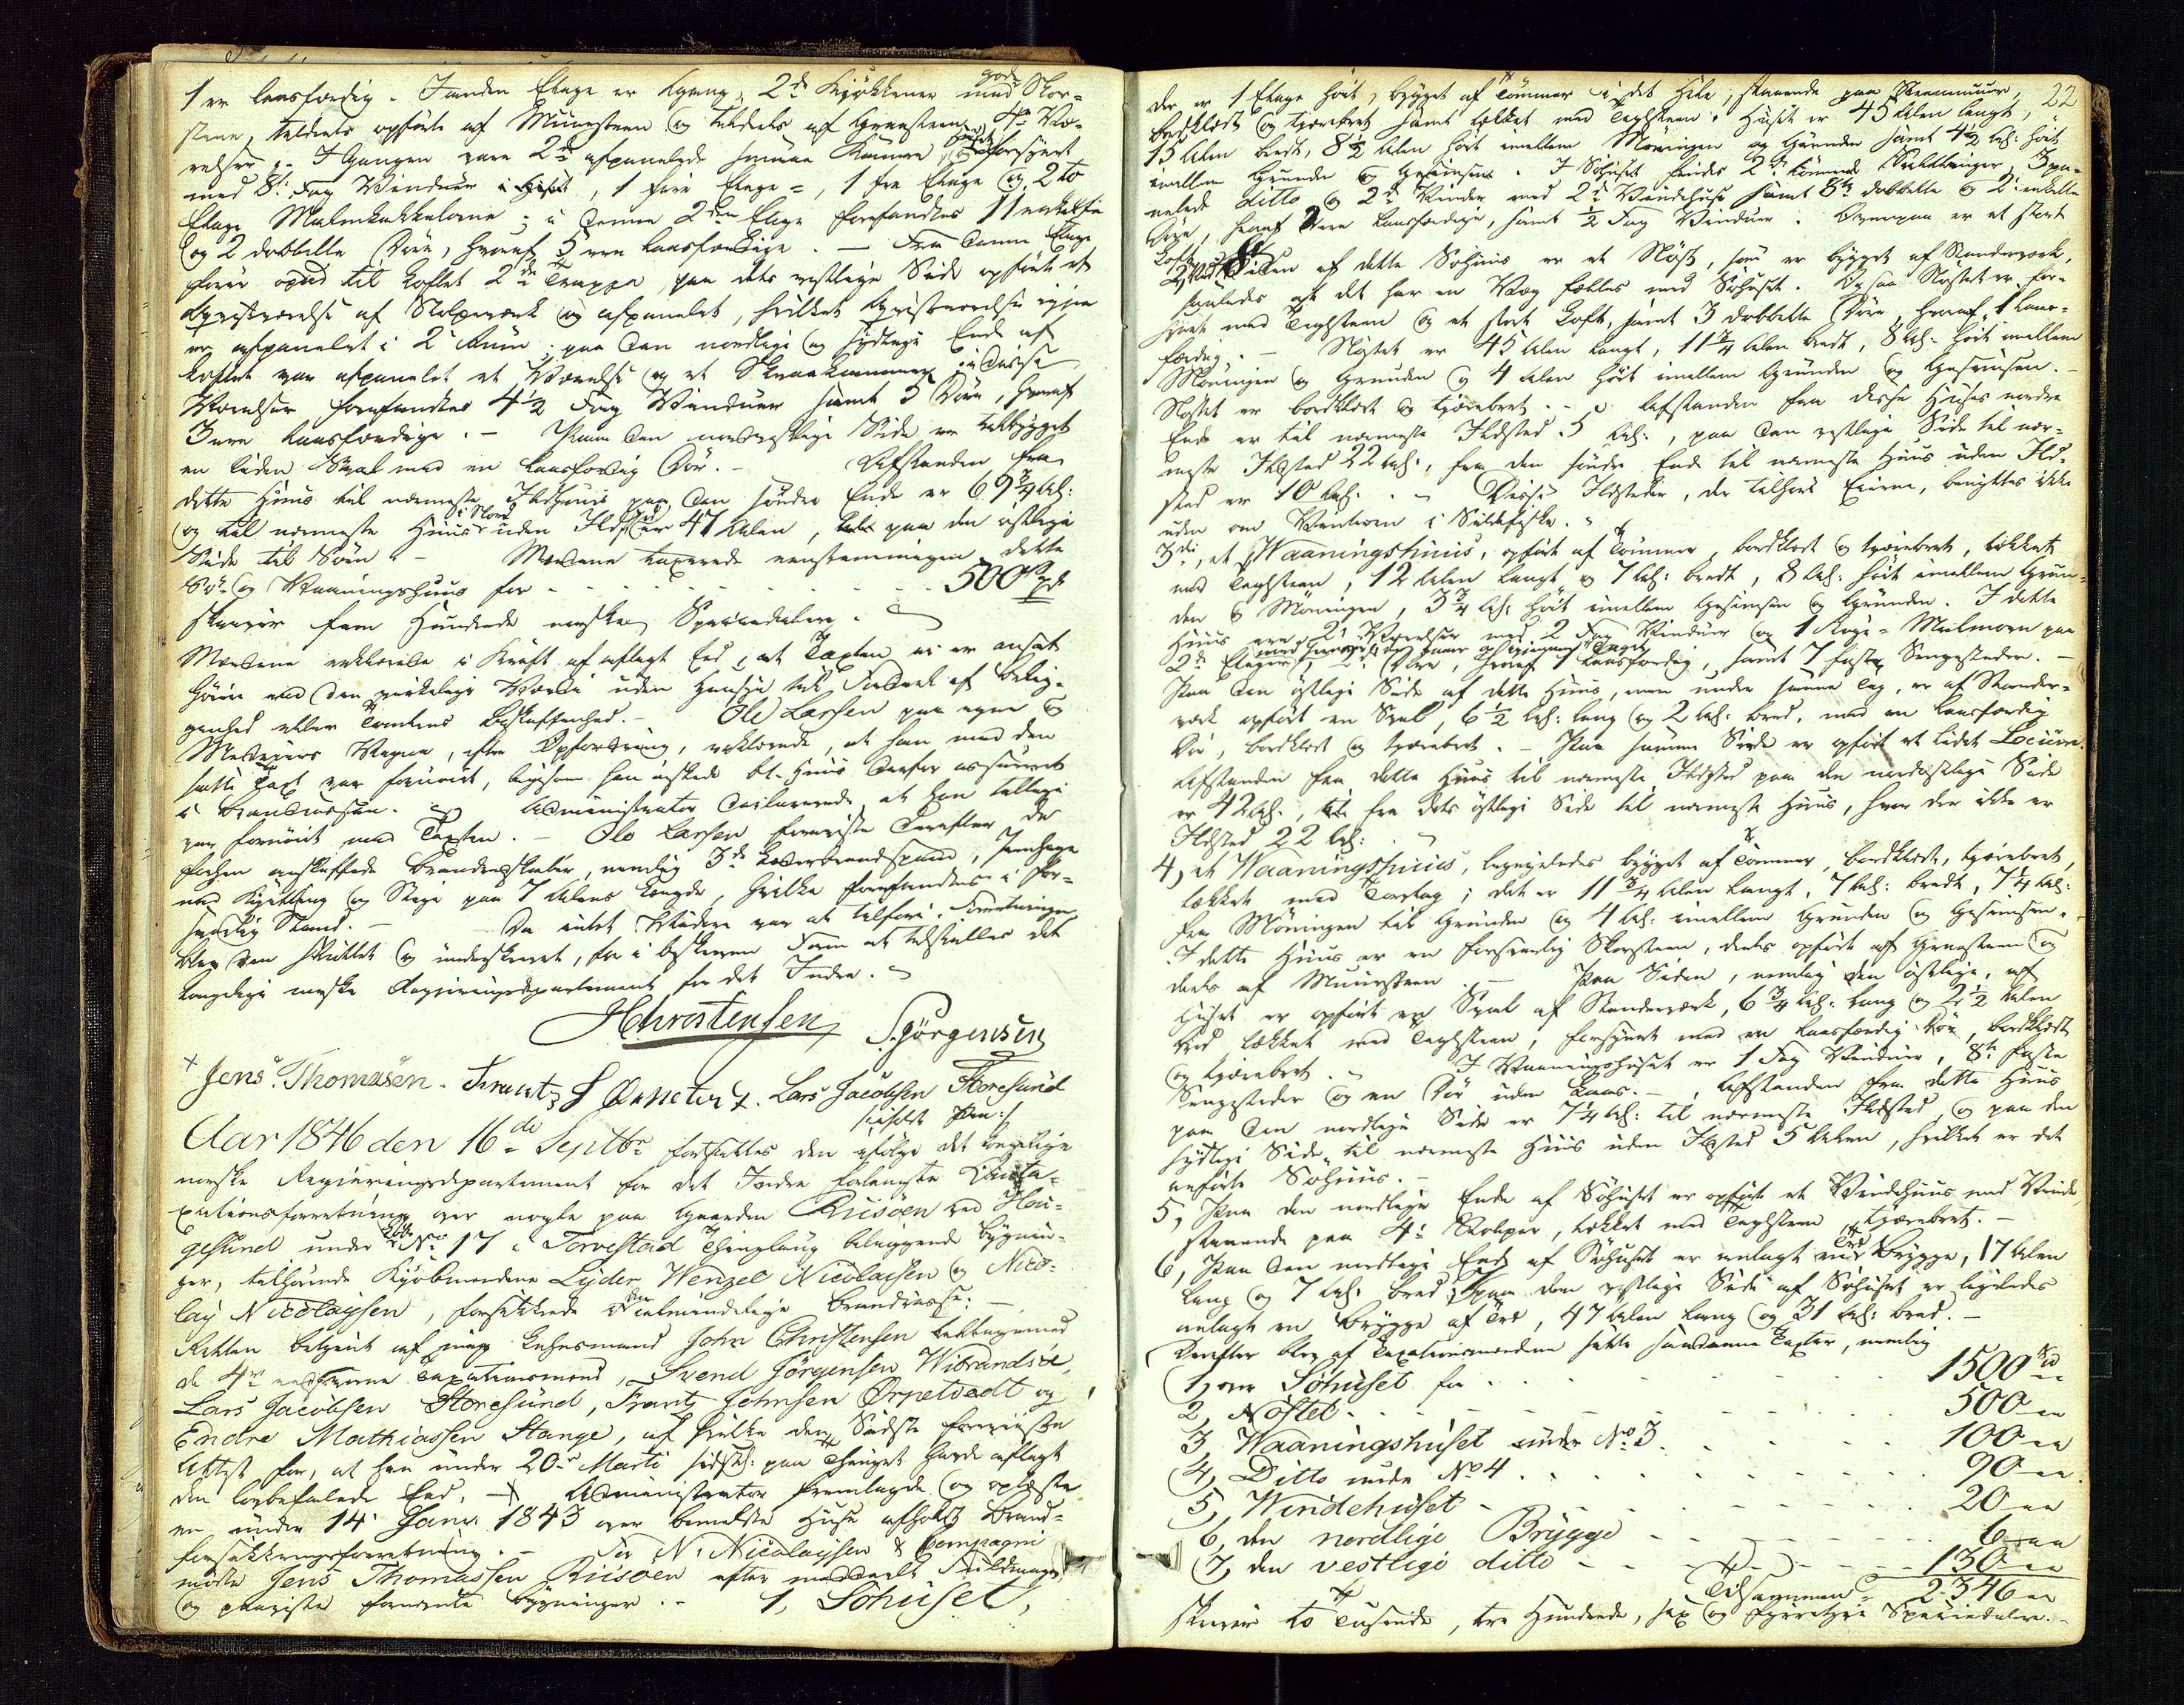 1 er laasfærdig. I anden Etage er Gang, 2de Kjøkkener med gode Skor-
stene, tildeels opførte af Muursteen og tildeels af Graasteen, 4re Væ-
relser. I Gangen vare 2de afpanelede smaae Kamre,
med 8te Fag Vinduer i Huset, 1 fire Etage =, 1 tre Etage og 2 to
Etage Malmkakkelovne; i denne 2den Etage forefandtes 11 enkelte
og 2 dobbelte Døre, hvoraf 5 ere laasfærdige. — Fra denne Etage
fører opad til Loftet 2de Trapper, paa dets vestlige Side opført et
Qvistværelse af Stolpeværk og afpanelet, hvilket Qvistværelse igjen
er afpanelet i 2 Rum; paa den nordlige og sydlige Ende af
Loftet var afpanelet et Værelse og et Skraakammer; i disse
Værelser forefandtes 4½ Fag Vinduer samt 5 Døre, hvoraf
3 ere laasfærdige. — Paa den nordvestlige Side er tilbygget
en liden Sval med en laasfærdig Dør. — Afstanden fra
dette Huus til nærmeste Ildhuus paa den søndre Ende er 69¾ Al:
og til nærmeste Huus i Nord uden Ildsted er 47 Alen, paa den østlige
Side til Søen. — Mændene taxerede eenstemmigen dette
Sø- og Vaaningshuus for . . . . . . . 500 Spd
skriver fem Hundrede norske Speciedaler.
Mændene erklærede i Kraft af aflagt Eed, at Taxten ei er ansat
høiere end den virkelige Værdi uden Hensyn til Fordeel af Belig-
genhed eller Tomtens Beskaffenhed. — Ole Larsen paa egne og
Medeieres Vegne, efter Opfordring, erklærede, at han med den
satte Taxt var fornøiet, ligesom han ønskede bt. Huus derfor assureret
i Brandcassen. — Administrator declarerede at han tillige
var fornøiet med Taxten. — Ole Larsen foreviste derefter de
forhen anskaffede Brandredskaber, nemlig 3de Læderbrandspande, Jernhage
med Kjetting og Stige paa 7 Alens Længde, hvilke forefandtes i for-
svarlig Stand. — Da intet Videre var at tilføie, Forretningen
blev den sluttet og underskrevet, for i beskreven Form at tilstilles det
kongelige norske Regjeringsdepartement for det Indre.
HChristensen S. Jörgensen
Jens Thomasen. Frantz J Ørpetvedt. Lars Jacobsen Storesund
Aar 1846 den 16de Septbr fortsattes den ifølge det kongelige
norske Regjeringsdepartement for det Indre forlangte Omta-
xationsforretning over nogle paa Gaarden Riisöen ved Hou-
gesund under No 17 i Torvestad Thinglaug beliggende Bygnin-
ger, tilhørende Kjøbmændene Lyder Wenzel Nicolaisen og Nico-
lay Nicolaysen, forsikkrede i den almindelige Brandcasse: —
Retten betjent af mig Lehnsmand John Christensen tilligemed
de 4re eedsvorne Taxationsmænd, Svend Jörgensen Wibrandsöe,
Lars Jacobsen Storesund, Frantz Johnsen Ørpetvedt og
Endre Mathiassen Stange, af hvilke den Sidste foreviiste
Attest for, at han under 20de Marti sidstl: paa Thinget havde aflagt
den lovbefalede Eed. — Administrator fremlagde og oplæste
en under 14 Janr 1843 over bemeldte Huse afholdt Brand-
forsikkringsforretning. — For N. Nicolaysen & Compagni
mødte Jens Thomassen Riisöen efter meddeelt Fuldmagt,
og paaviste fornævnte Bygninger. — 1, Söhuset,
22
der er 1 Etage høit, bygget af Tømmer i det Hele, staaende paa Steenmuur,
bordklædt og tjærebret samt tækket med Teglsteen. Huset er 45 Alen langt,
15 Alen bredt, 8½ Alen høit imellem Møningen og Grunden samt 4½ Al: høit
imellem Grunden og Gesimsen. I Söhuset findes 2de
nelede ditto og 2de Vinder med 2de Vindehuse samt 8te dobbelte og 2 enkelte
Døre, hvoraf 2 ere laasfærdige, samt ½ Fag Vinduer. Ovenpaa er et stort
Loft.
2, Ved Siden af dette Søhuus er et Nøst, som er bygget af Standerværk,
saaledes at det har en Væg fælles med Søhuset. Ogsaa Nøstet er for-
synet med Teglsteen og et stort Loft, samt 3 dobbelte Døre, hvoraf 1 laas-
færdig. — Nøstet er 45 Alen langt, 11¾ Alen bredt, 8 Al: høit imellem
Møningen og Grunden og 4 Alen høit imellem Grunden og Gesimsen. —
Nøstet er bordklædt og tjærebret. — Afstanden fra disse Huses nordre
Ende er til nærmeste Ildsted 5 Al:, paa den vestlige Side til nær-
meste Ildsted 22 Al:, fra den søndre Ende til nærmeste Huus uden Ild-
sted er 10 Al: — Disse Ildsteder, der tilhøre Eierne, benyttes ikke
uden om Vinteren i Sildefiske.
3di, et Waaningshuus, opført af Tømmer, bordklædt og tjærebret, tækket
med Teglsteen, 12 Alen langt og 7 Al: bredt, 8 Al: høit imellem Grun-
den og Møningen, 3¾ Al: høit imellem Gesimsen og Grunden. I dette
Huus ere 2de Værelser med 2 Fag Vinduer og 1 Bilægger-Malmovn paa
2de Etager, 2de Døre, hvoraf 1 laasfærdig, samt 7 faste Sengesteder. —
Paa den østlige Side af dette Huus, men under samme Tag, er af Stander-
værk opført en Sval, 6½ Al: lang og 2 Al: bred, med en laasfærdig
Dør, bordklædt og tjærebret. — Paa samme Side er opført et lidet Locum.
Afstanden fra dette Huus til nærmeste Ildsted paa den nordøstlige Side
er 42 Al:, fra dets østlige Side til nærmeste Huus, hvor der ikke er
Ildsted 22 Al:
4, et Waaningshuus, ligeledes bygget af Tømmer, bordklædt, tjærebret,
tækket med Torvtag; det er 11¾ Alen langt, 7 Al: bredt, 7¼ Al:
fra Møningen til Grunden og 4 Al: imellem Grunden og Gesimsen.
I dette Huus er en forsvarlig Skorsteen, deels opført af Graasteen og
deels af Muursteen. — Paa Siden, nemlig den østlige, af
Huset er opført en Sval af Standerværk, 6¾ Al: lang og 2½ Alen
bred tækket med Teglsteen, forsynet med en laasfærdig Dør, bordklædt
og tjærebret. — I Vaaningshuset er 1 Fag Vinduer, 8te faste
Sengesteder og en Dør uden Laas. — Afstanden fra dette Huus
paa den nordlige Side er 7¼ Al: til nærmeste Ildsted, og paa den
sydlige Side til nærmeste Huus uden Ildsted 5 Alen, hvilket er det
anførte Søhuus. —
5, Paa den nordlige Ende af Søhuset er opført et Vindehuus med Vinde
staaende paa 4re Stolper, tækket med Teglsteen, tjærebret. —
6, Paa den nordlige Ende af Søhuset er anlagt en Brygge, 17 Alen
lang og 7 Al: bred; 7, paa den vestlige Side af Søhuset er ligeledes
anlagt en Brygge af Træ, 47 Alen lang og 31 Al: bred. —
Derefter blev af Taxationsmændene satte saadanne Taxter, nemlig
1, over Söhuset for . . . . . . . 1500 Spd
2, Nöstet . . . . . . . 500 —
3, Waaningshuset under No 3. . . . . . 100 —
4, Ditto under No 4 . . . . . . 90 —
5, Windehuset . . . . . . 20 —
6, den nordlige Brygge . . . . . . 6 —
7, den vestlige ditto . . . . . . 130 —
Tilsammen 2346 —
skriver to Tusinde, tre Hundrede, sex og fyrretyve Speciedaler.